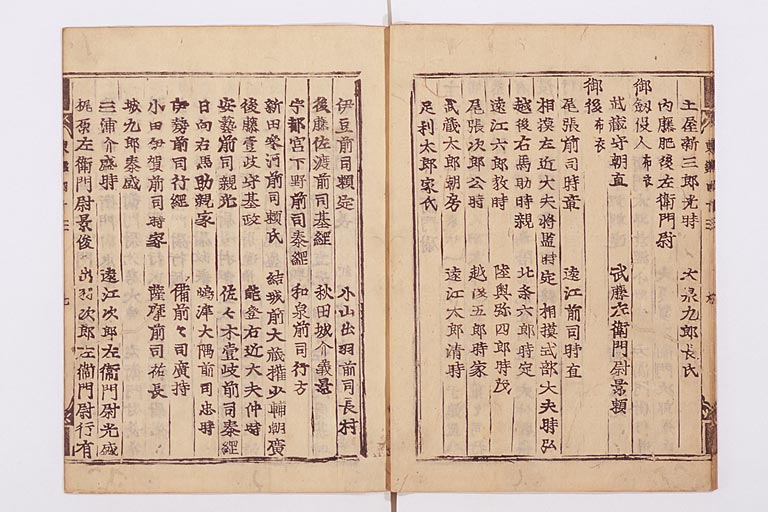 土屋新三郎光時　大泉九郎長氏
内藤肥後左衛門尉
御劔役人布衣
武蔵守朝直　武藤左衛門尉景頼
御後布衣
尾張前司時章　遠江前司時直
相摸左近大夫将監時定　相摸式部大夫時弘
越後右馬助時親　北条六郎時定
遠江六郎教時　陸奥弥四郎時茂
尾張次郎公時　越後五郎時家
武蔵太郎朝房　遠江太郎清時
足利太郎家氏
伊豆前司頼定　小山出羽前司長村
後藤佐渡前司基綱　秋田城介義景
宇都宮下野前司泰綱　和泉前司行方
新田参河前司頼氏　結城前大蔵権少輔朝廣
後藤壹岐守基政　能登右近大夫仲時
安藝前司親光　佐々木壹岐前司泰綱
日向右馬助親家　嶋津大隅前司忠時
伊勢前司行綱　備前々司廣持
小田伊賀前司時家　薩摩前司祐長
城九郎泰盛
三浦介盛時　遠江次郎左衛門尉光盛
梶原左衛門尉景俊　出羽次郎左衛門尉行有